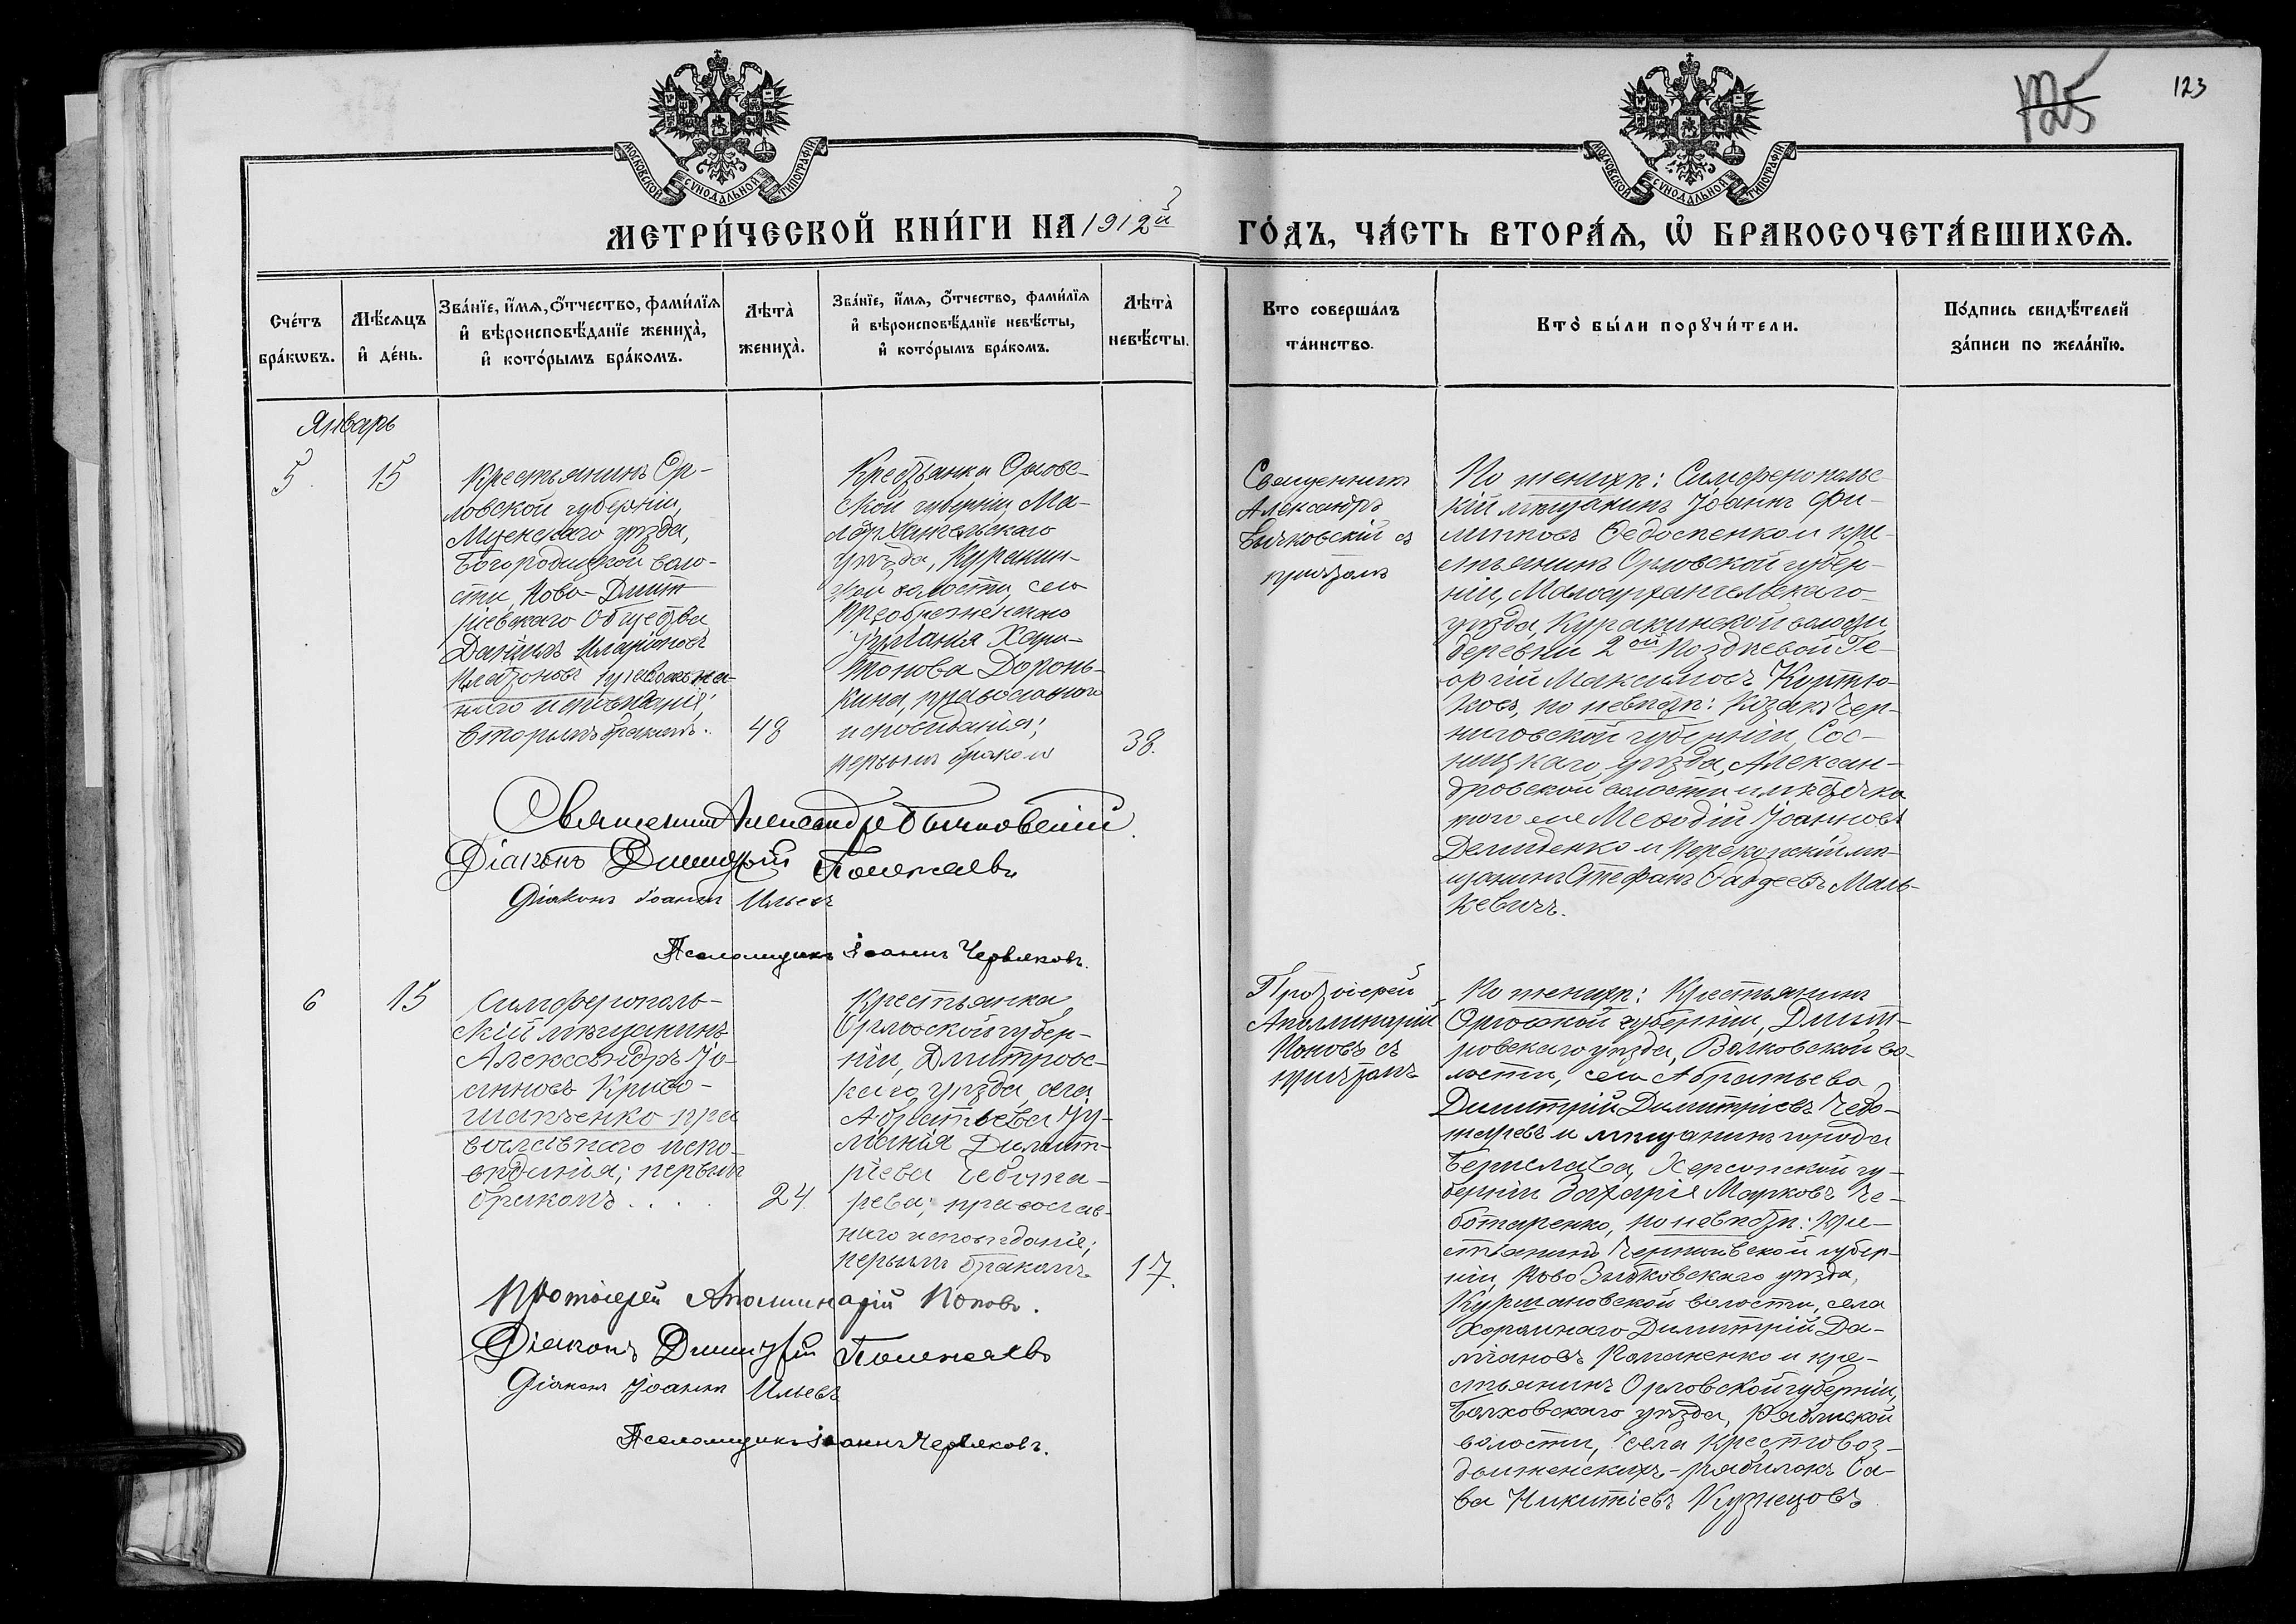 125
123
МОСКОВСКОЙ СѴНОДАЛЬНОЙ ТИПОГРАФІИ
МОСКОВСКОЙ СѴНОДАЛЬНОЙ ТИПОГРАФІИ
МЕТРИ́ЧЕСКОЙ КНИ́ГИ НА 1912й
ГО́ДЪ, ЧА́СТЬ ВТОРА́Ѧ, Ѡ҆ БРАКОСОЧЕТА́ВШИХСѦ.
Сче́тъ
бра́кѡвъ.
Мѣ́сѧцъ
и҆ де́нь.
Зва́нїе, и҆́мѧ, ѻ҆́тчество, фами́лїѧ
и҆ вѣроисповѣ́данїе жениха̀,
и҆ кото́рымъ бра́комъ.
Лѣта̀
жениха̀.
Зва́нїе, и҆́мѧ, ѻ҆́тчество, фами́лїѧ
и҆ вѣроисповѣ́данїе невѣ́сты,
и҆ кото́рымъ бра́комъ.
Лѣта̀
невѣ́сты.
Кто соверша́лъ
та́инство.
Кто̀ бы́ли порꙋчи́тели.
По́дпись свидѣ́телей
за́писи по жела́нїю.
Январь
5.
15
Крестьянинъ Ор-
ловской губерніи,
Мценскаго уѣзда,
Богородицкой воло-
сти, Ново-Дмит
ріевскаго общества
Даніилъ Иларіоновъ
православ-
наго исповѣданія;
вторымъ бракомъ.
48
Крестьянка Орловс-
ской губерніи, Ма-
лоархангельскаго
уѣзда, Куракин-
ской волости, села
Преображенскаго
Іуліанія Хари-
тонова Доронь-
кина, православнаго
исповѣданія;
первымъ бракомъ
38.
Священникъ
Александръ
Бычковскій съ
причтомъ
По женихѣ: Симферопольс-
кій мѣщанинъ Іоаннъ Фи-
липповъ Федосненко и кре-
стьянинъ Орловской губер-
ніи, Малоархангельскаго
уѣзда, Куракинской волости
деревни 2ой Поздневой Ге-
оргій Максимовъ Куртю-
ковъ, по невѣстѣ: Козакъ Чер-
ниговской губерніи, Сос-
ницкаго уѣзда, Алексан-
дровской волости и мѣстечка
того же Меѳодій Іоанновъ
Демиденко и Перекопскій мѣ-
щанинъ Стефанъ Фаддеевъ Маль-
кевичъ.
Священникъ Александръ Бычковскій.
Діаконъ Димитрій Полежаевъ
Діаконъ Іоаннъ Ильевъ
Псаломщикъ Іоаннъ Червяковъ.
6
15
Симферополь-
скій мѣщанинъ
Александръ Іо-
анновъ Криво-
шапченко пра
вославнаго испо-
вѣданія; первымъ
бракомъ . . . .
24.
Крестьянка
Орловской губер-
ніи, Дмитровс-
каго уѣзда, села
Абратьева Іу-
ліанія Димит-
ріева Чебота-
рева, православ-
наго исповѣданія;
первымъ бракомъ
17.
Протоіерей
Аполлинарій
Поповъ съ
причтомъ
По женихѣ: Крестьянинъ
Орловской губерніи, Дмит-
ровскаго уѣзда, Волковской во-
лости, села Абратьева
Димитрій Димитріевъ Чебо-
таревъ и мѣщанинъ города
Берислава, Херсонской гу-
берніи Захарія Марковъ Че-
ботаренко, по невѣстѣ: Кре-
стьянинъ Черниговской губер-
ніи, Ново Зыбковскаго уѣзда,
Куршановской волости, села
Хоромнаго Димитрій Да-
міановъ Романенко и кре-
стьянинъ Орловской губерніи,
Болховскаго уѣзда, Рябинской
волости, села Крестовоз-
движенскихъ-Рябинокъ Са-
ва Никитіевъ Кузнецовъ
Протоіерей Аполлинарій Поповъ.
Діаконъ Димитрій Полежаевъ
Діаконъ Іоаннъ Ильевъ
Псаломщикъ Іоаннъ Червяковъ.